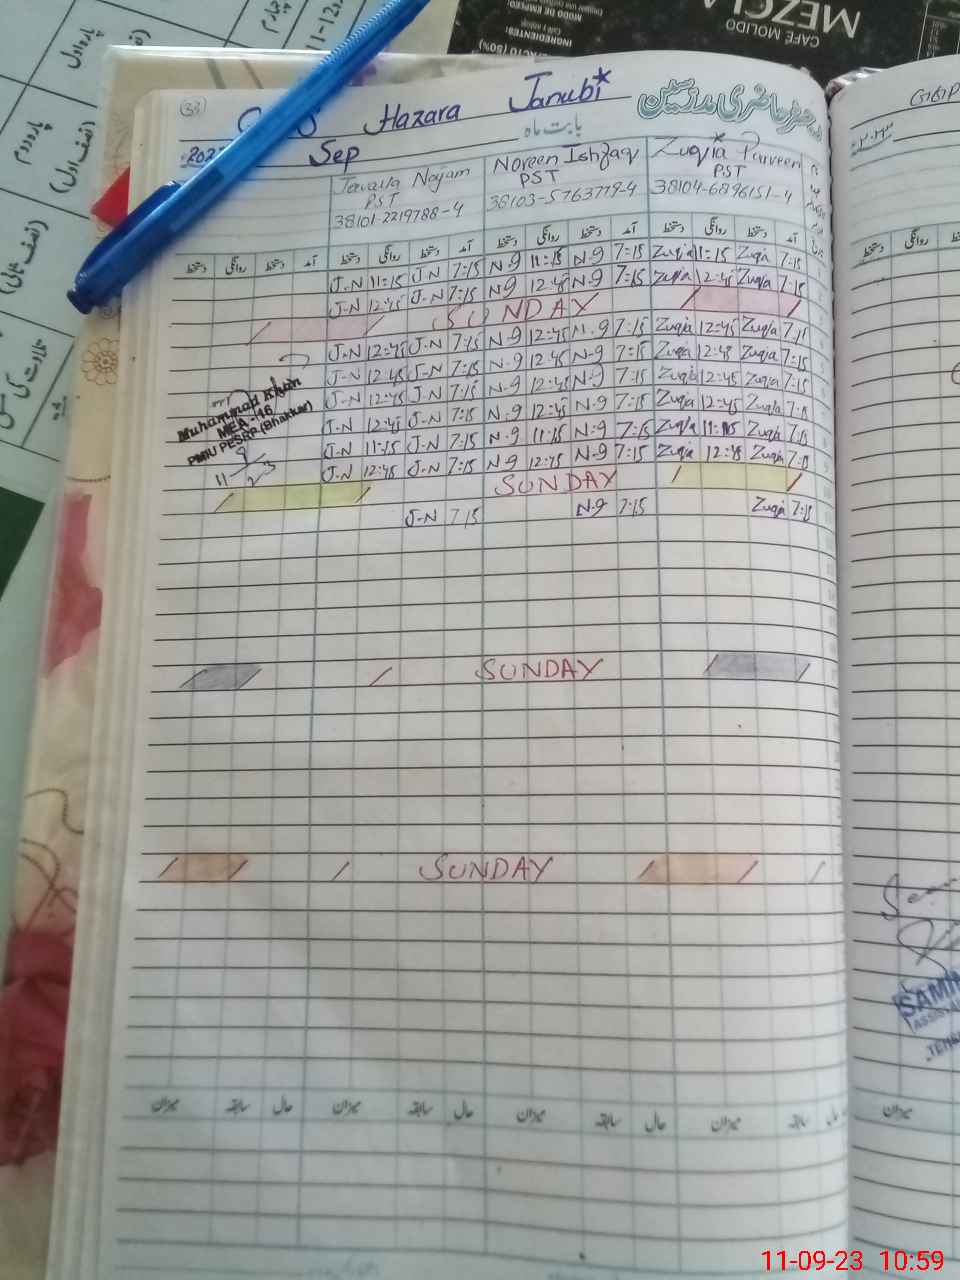 MEZCLA
CAFÉ MOLIDO
MODO DE EMPLEO:
INGREDIENTES:
پارہ اول
پارہ دوم
(نصف اول)
(نصف ثانی)
33
Hazara Janubi*
بابت ماہ
Sep
Noreen Ishfaq
PST
38103-5763779-4
Zuqia Parveen
PST
38104-6896151-4
PST
38101-2219788-4
دستخط روانگی دستخط آمد دستخط روانگی دستخط آمد دستخط روانگی دستخط آمد دستخط روانگی دستخط آمد
J-N 11:15 J-N 7:15 N-9 11:15 N-9 7:15 Zuqia 11:15 Zuqia 7:15
J-N 12:45 J-N 7:15 N-9 12:45 N-9 7:15 Zuqia 12:45 Zuqia 7:15
SUNDAY
J-N 12:45 J-N 7:15 N-9 12:45 N-9 7:15 Zuqia 12:45 Zuqia 7:15
J-N 12:45 J-N 7:15 N-9 12:45 N-9 7:15 Zuqia 12:45 Zuqia 7:15
J-N 12:45 J-N 7:15 N-9 12:45 N-9 7:15 Zuqia 12:45 Zuqia 7:15
J-N 12:45 J-N 7:15 N-9 12:45 N-9 7:15 Zuqia 12:45 Zuqia 7:15
J-N 11:15 J-N 7:15 N-9 11:15 N-9 7:15 Zuqia 11:15 Zuqia 7:15
J-N 12:45 J-N 7:15 N-9 12:45 N-9 7:15 Zuqia 12:45 Zuqia 7:15
Muhammad Khan
MEA-16
PMIU PESRP (Bhakkar)
SUNDAY
J-N 7:15 N-9 7:15 Zuqia 7:15
SUNDAY
SUNDAY
میزان سابقہ حال میزان سابقہ حال میزان سابقہ حال میزان سابقہ حال
روانگی دستخط
میزان
11-09-23 10:59